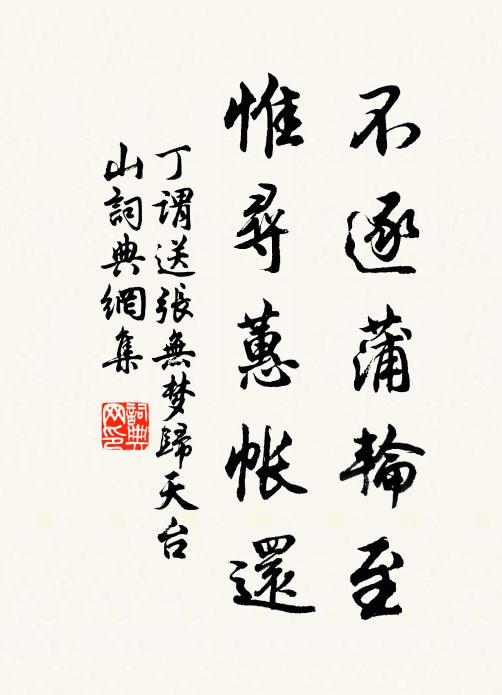 不逐蒲輪至
惟尋蕙帳還
丁謂送張無梦歸天台
山詞典網集
詞典
网印